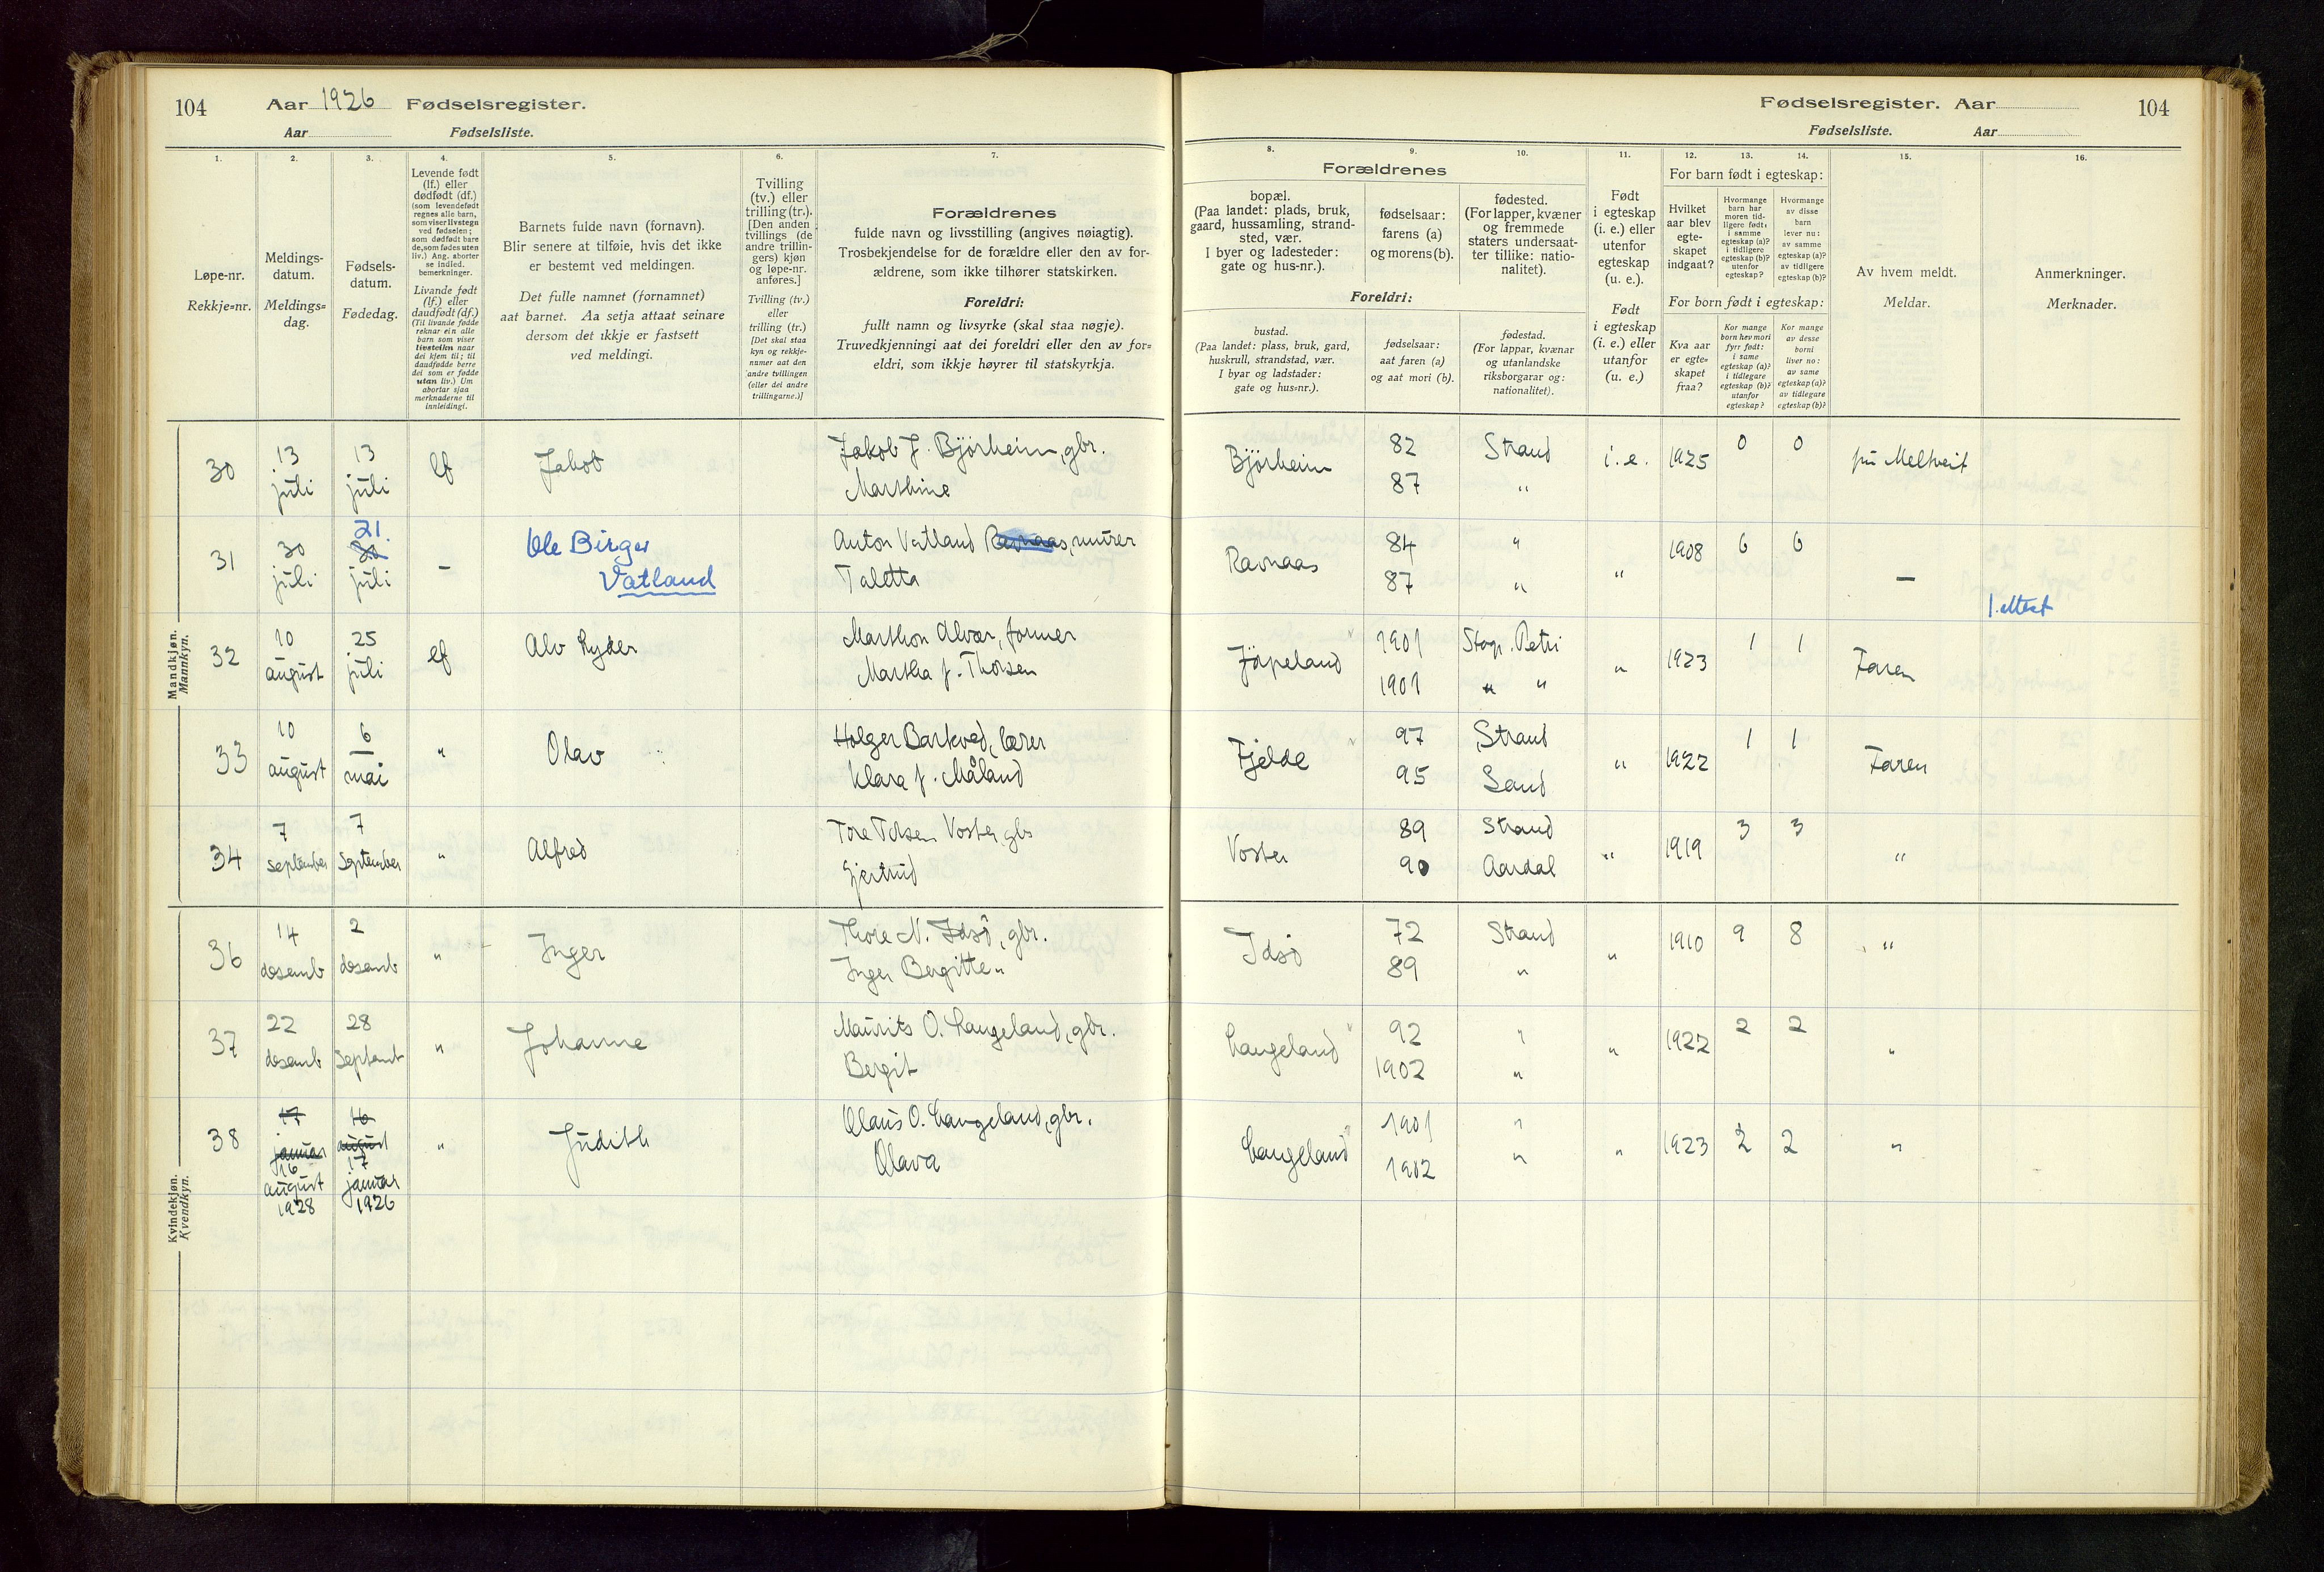 104 Aar 1926 Fødselsregister.
Aar Fødselsliste.
1. 2. 3. 4. 5. 6. 7.
Løpe-nr.
Rekkje=nr.
Meldings-
datum.
Meldings=
dag.
Fødsels-
datum.
Fødedag.
Levende født
(lf.) eller
dødfødt (df.)
(som levendefødt
regnes alle barn,
som viser livstegn
ved fødselen;
som dødfødt bare
de, som fødes uten
liv.) Ang. aborter
se indled.
bemerkninger.
Livande født
(lf.) eller
daudfødt (df.)
(Til livande fødde
reknar ein alle
barn som viser
livsteikn naar
dei kjem til; til
daudfødde berre
dei som er fødde
utan liv.) Um
abortar sjaa
merknaderne til
innleidingi.
Barnets fulde navn (fornavn).
Blir senere at tilføie, hvis det ikke
er bestemt ved meldingen.
Det fulle namnet (fornamnet)
aat barnet. Aa setja attaat seinare
dersom det ikkje er fastsett
ved meldingi.
Tvilling
(tv.) eller
trilling (tr.).
[Den anden
tvillings (de
andre trillin-
gers) kjøn
og løpe-nr.
anføres.]
Tvilling (tv.)
eller
trilling (tr.)
[Det skal staa
kyn og rekkje-
numer aat den
andre tvillingen
(eller dei andre
trillingarne.)]
Forældrenes
fulde navn og livsstilling (angives nøiagtig).
Trosbekjendelse for de forældre eller den av for-
ældrene, som ikke tilhører statskirken.
Foreldri:
fullt namn og livsyrke (skal staa nøgje).
Truvedkjenningi aat dei foreldri eller den av for=
eldri, som ikkje høyrer til statskyrkja.
Mandkjøn.
Mannkyn.
30 13 juli 13 juli lf Jakob
Jakob J. Bjørheim, gbr.
Marthine
31 30 juli 21. 30 juli - Ole Birger
Vatland
Anton Vatland Ravnaas, murer
Taletta
32 10 august 25 juli lf Alv Ryder
Marthon Alvær, former
Martha f. Thorsen
33 10 august 6 mai " Olav
Holger Barkved, lærer
Klara f. Måland
34 7 september 7 september " Alfred
Tore Torsen Voster, gbr
Gjertrud
Kvindekjøn.
Kvendkyn.
36 14 desemb 2 desemb " Inger
Thore N. Idsö, gbr.
Inger Bergitte "
37 22 desemb 28 septemb " Johanne
Maurits O. Langeland, gbr.
Bergit
38 17 januar 16 august 1928 16 august 17 januar 1926 " Judith
Olaus O. Langeland, gbr.
Olava
Fødselsregister. Aar 104
Fødselsliste. Aar
8. 9. 10. 11. 12. 13. 14. 15. 16.
Forældrenes
bopæl.
(Paa landet: plads, bruk,
gaard, hussamling, strand-
sted, vær.
I byer og ladesteder:
gate og hus-nr.).
fødselsaar:
farens (a)
og morens (b).
fødested.
(For lapper, kvæner
og fremmede
staters undersaat-
ter tillike: natio-
nalitet).
Foreldri:
bustad.
(Paa landet: plass, bruk, gard,
huskrull, strandstad, vær.
I byar og ladstader:
gate og hus=nr.).
fødselsaar:
aat faren (a)
og aat mori (b).
fødestad.
(For lappar, kvænar
og utanlandske
riksborgarar og:
nationalitet).
Født
i egteskap
(i. e.) eller
utenfor
egteskap
(u. e.).
Født
i egteskap
(i. e.) eller
utanfor
(u. e.)
For barn født i egteskap:
Hvilket
aar blev
egte-
skapet
indgaat?
Hvormange
barn har
moren tid-
ligere født:
i samme
egteskap (a)?
i tidligere
egteskap (b)?
utenfor
egteskap?
Hvormange
av disse
barn
lever nu:
av samme
egteskap (a)?
av tidligere
egteskap (b)?
For born født i egteskap:
Kva aar
er egte=
skapet
fraa?
Kor mange
born hev mori
fyrr født:
i same
egteskap (a)?
i tidlegare
egteskap (b)?
utanfor
egteskap?
Kor mange
av desse
borni
liver no:
av same
egteskap (a)?
av tidlegare
egteskap (b)?
Av hvem meldt.
Meldar.
Anmerkninger.
Merknader.
Bjørheim 82 Strand i.e. 1925 0 0 Meltveit
87 "
Ravnaas 84 " " 1908 6 6 —
87 "
1. attest
Jörpeland 1901 Stvgr. Petri " 1923 1 1 Faren
1901 " "
Fjelde 97 Strand " 1922 1 1 Faren
95 Sand
Voster 89 Strand " 1919 3 3 "
90 Aardal
Idsö 72 Strand " 1910 9 8 "
89 "
Langeland 92 " " 1922 2 2 "
1902 "
Langeland 1901 " " 1923 2 2 "
1902 "